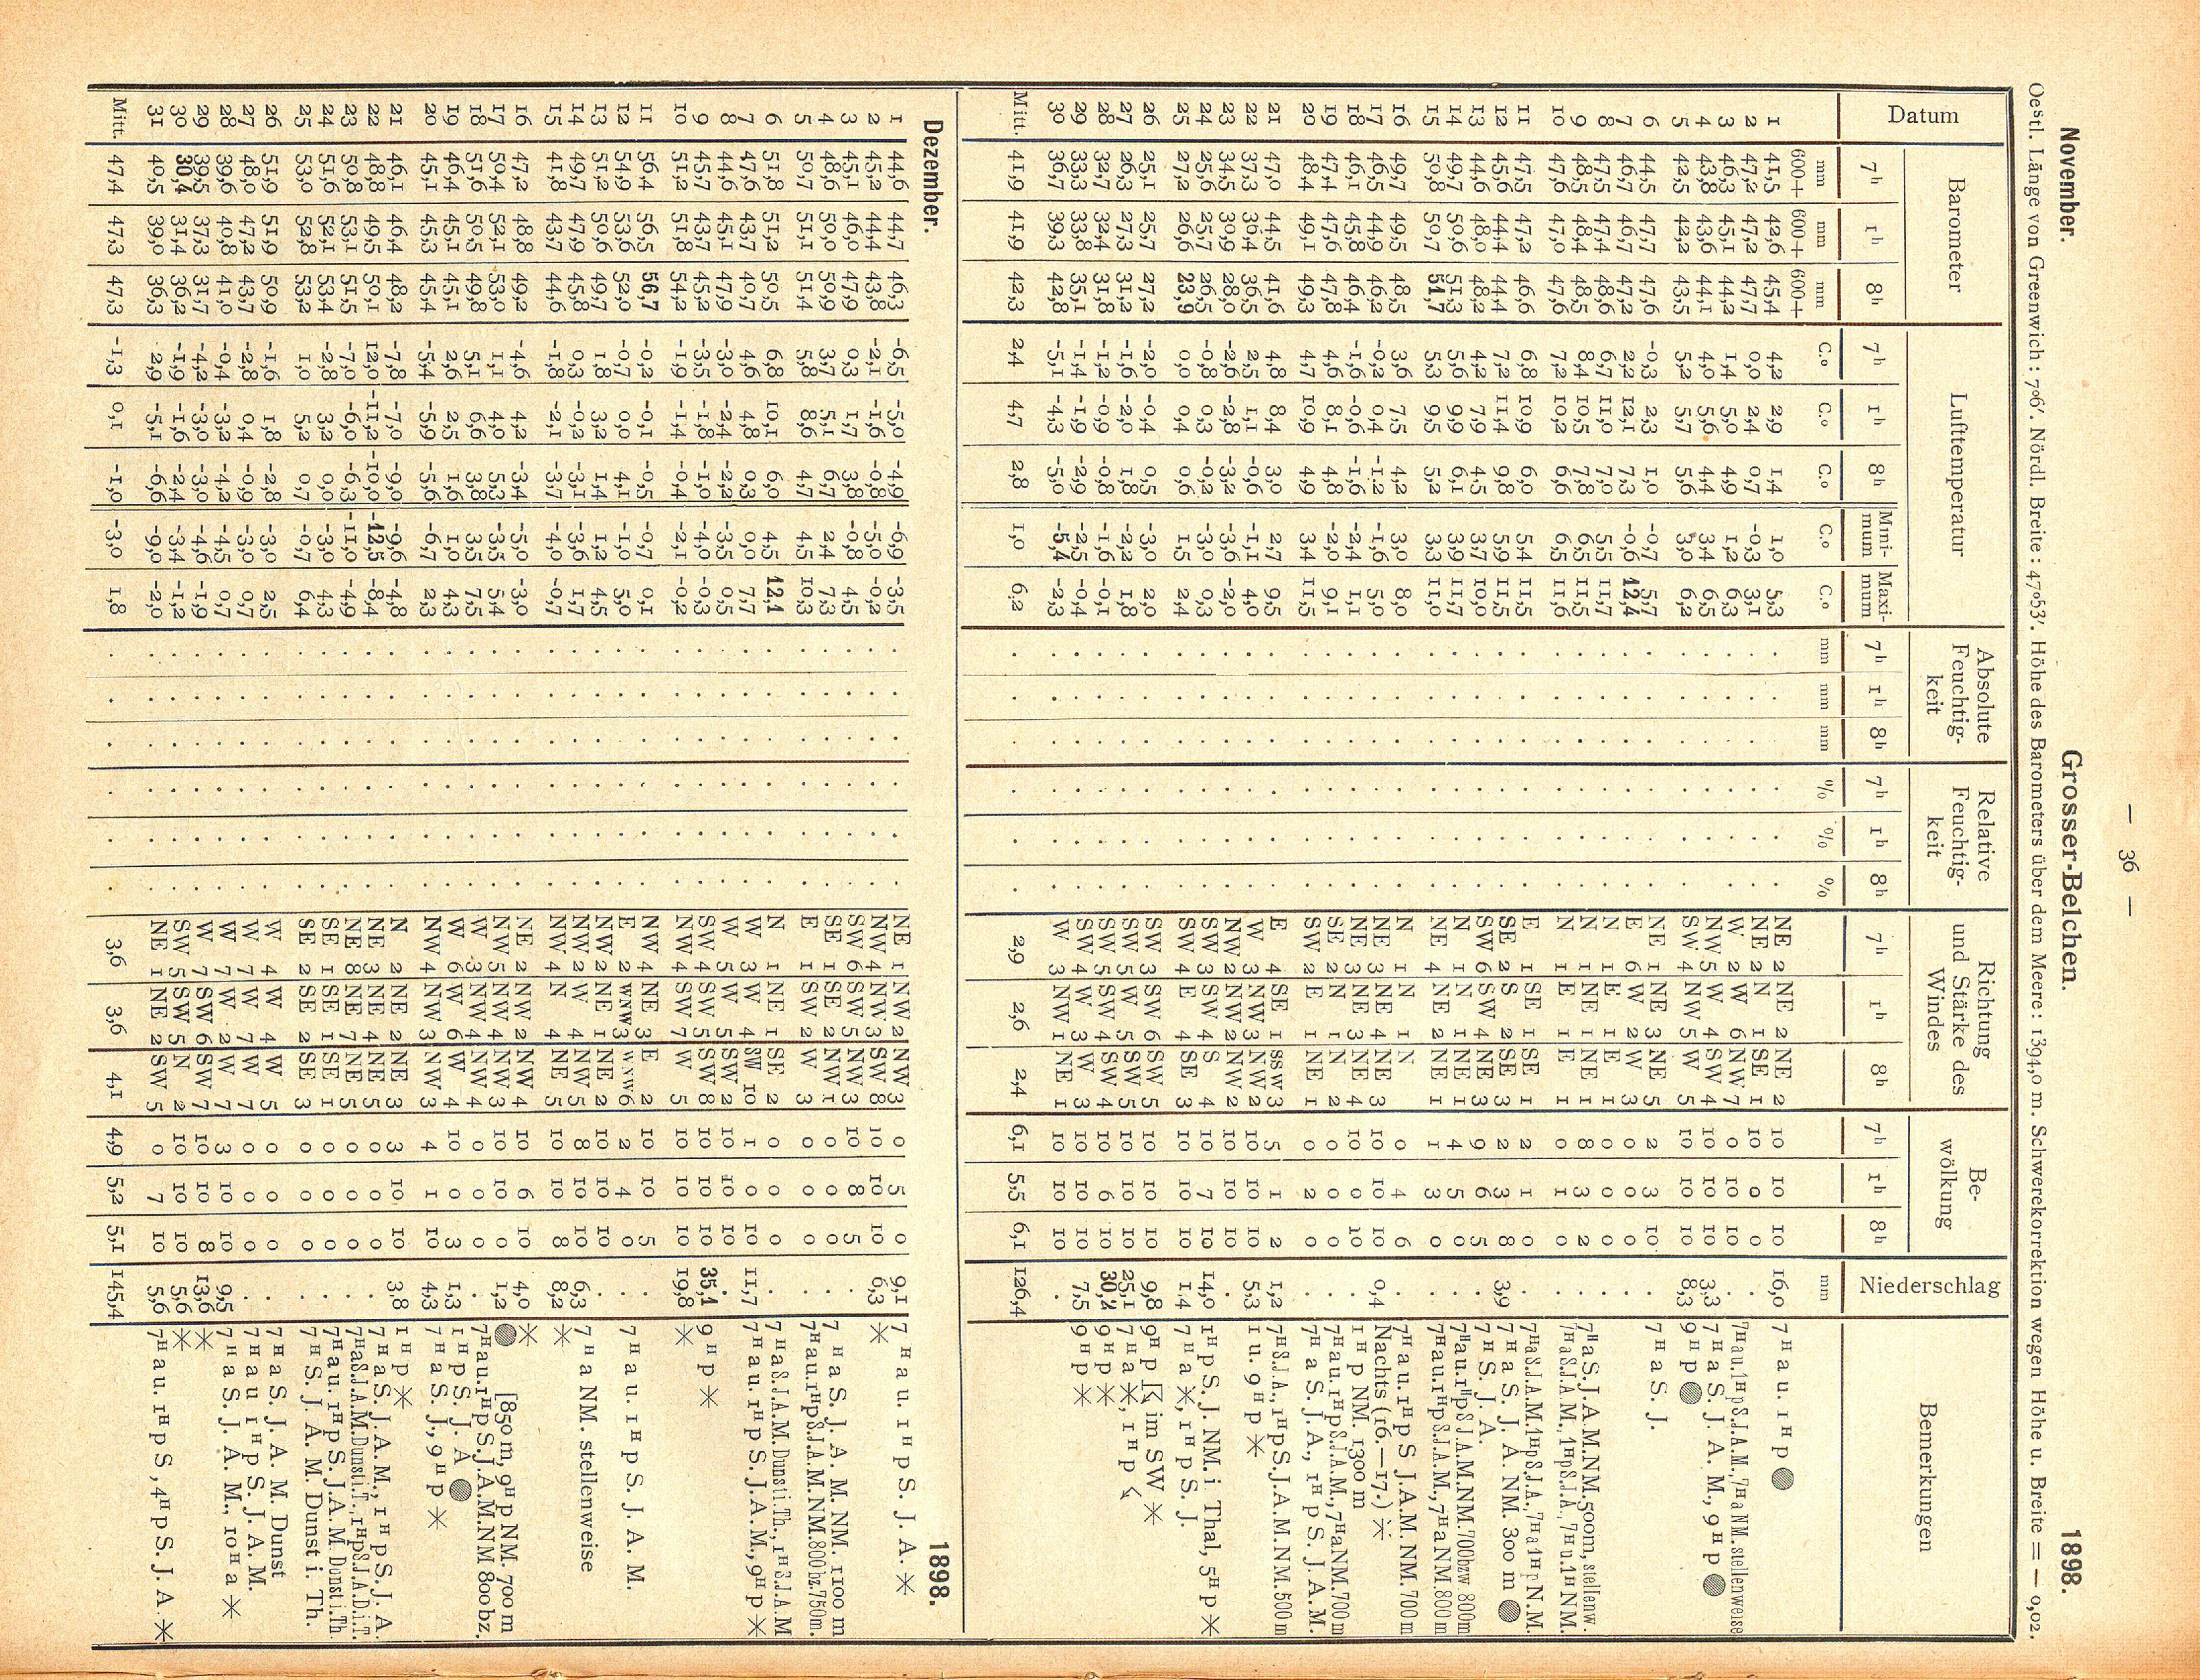 — 36 —
November. Grosser-Belchen. 1898.
Oestl. Länge von Greenwich: 7°6′. Nördl. Breite: 47°53′. Höhe des Barometers über dem Meere: 1394,0 m. Schwerekorrektion wegen Höhe u. Breite = — 0,02.
Datum Barometer Lufttemperatur Absolute Feuchtigkeit Relative Feuchtigkeit Richtung und Stärke des Windes Bewölkung Niederschlag Bemerkungen
7h 1h 8h 7h 1h 8h Minimum Maximum 7h 1h 8h 7h 1h 8h 7h 1h 8h 7h 1h 8h
mm 600+ mm 600+ mm 600+ C.° C.° C.° C.° C.° mm mm mm % % % mm
1 41,5 42,6 45,4 4,2 2,9 1,4 1,0 5,3 . . . . . . NE 2 NE 2 NE 2 10 10 10 16,0 7H a u. 1H p ●
2 47,2 47,2 47,7 0,0 2,4 0,7 -0,3 3,1 . . . . . . NE 2 N 1 SE 1 10 0 0 .
3 46,3 45,1 44,2 1,4 5,0 4,9 1,2 6,3 . . . . . . W 2 W 6 NW 7 0 10 10 . 7H a u. 1H p S. J. A. M., 7H a NM. stellenweise
4 43,8 43,6 44,1 4,0 5,6 4,4 3,4 6,5 . . . . . . NW 5 W 4 SW 4 10 10 10 3,3 7H a S. J. A. M., 9H p ●
5 42,5 42,2 43,5 5,2 5,7 5,6 3,0 6,2 . . . . . . SW 4 NW 5 W 5 10 10 10 8,3 9H p ●
6 44,5 47,7 47,6 -0,3 2,3 1,0 -0,7 5,7 . . . . . . NE 1 NE 3 NE 5 2 3 10 . 7H a S. J.
7 46,7 46,7 47,2 2,2 12,1 7,3 -0,6 12,4 . . . . . . E 6 W 2 W 3 0 0 0 .
8 47,5 47,4 48,6 6,7 11,0 7,0 5,5 11,7 . . . . . . N 1 E 1 E 1 0 0 0 .
9 48,5 48,4 48,5 8,4 10,5 7,8 6,5 11,5 . . . . . . N 1 NE 1 NE 1 8 3 2 . 7H a S. J. A. M. NM. 500m, stellenw.
10 47,6 47,0 47,6 7,2 10,2 6,6 6,5 11,6 . . . . . . N 1 E 1 E 1 0 1 0 . 7H a S. J. A. M., 1H p S. J. A., 7H u. 1H NM.
11 47,5 47,2 46,6 6,8 10,9 6,0 5,4 11,5 . . . . . . E 1 SE 1 SE 1 2 1 0 . 7H a S. J. A. M. 1H p S. J. A., 7H a 1H p N.M.
12 45,6 44,4 44,4 7,2 11,4 9,8 5,9 11,5 . . . . . . SE 2 S 2 SE 3 2 3 8 3,9 7H a S. J. A. NM. 300 m ●
13 44,6 48,0 48,2 4,2 7,9 4,5 3,7 10,0 . . . . . . SW 6 SW 4 NE 3 9 6 5 . 7H S. J. A.
14 49,7 50,6 51,3 5,6 9,9 6,1 3,9 11,7 . . . . . . N 1 N 1 NE 1 4 5 0 . 7H a u. 1H p S J. A. M. NM. 700 bzw 800m
15 50,8 50,7 51,7 5,3 9,5 5,2 3,3 11,0 . . . . . . NE 4 NE 2 NE 1 1 3 0 . 7H a u. 1H p S. J. A. M., 7H a NM. 800 m
16 49,7 49,5 48,5 3,6 7,5 4,2 3,0 8,0 . . . . . . N 1 N 1 N 0 4 6 . 7H a u. 1H p S J. A. M. NM. 700 m
17 46,5 44,9 46,2 -0,2 0,4 -1,2 -1,6 5,0 . . . . . . NE 3 NE 4 NE 3 10 10 10 0,4 Nachts (16.—17.) ✳
18 46,1 45,8 46,4 -1,6 -0,6 -1,6 -2,4 1,1 . . . . . . NE 3 NE 3 NE 4 10 0 10 . 1H p NM. 1300 m
19 47,4 47,6 47,8 4,6 8,1 4,8 -2,0 9,1 . . . . . . SE 2 N 1 N 2 0 0 0 . 7H a u. 1H p S. J. A. M., 7H a NM. 700 m
20 48,4 49,1 49,3 4,7 10,9 4,9 3,4 11,5 . . . . . . SW 2 E 1 NE 1 0 2 0 . 7H a S. J. A., 1H p S. J. A. M.
21 47,0 44,5 41,6 4,8 8,4 3,0 2,7 9,5 . . . . . . E 4 SE 1 SSW 3 5 1 2 1,2 7H S. J. A., 1H p S. J. A. M. NM. 500 m
22 37,3 36,4 36,5 2,5 1,1 -0,6 -1,1 4,0 . . . . . . W 3 NW 3 NW 2 10 10 10 5,3 1 u. 9H p ✳
23 34,5 30,9 28,0 -2,6 -2,8 -3,2 -3,6 -2,2 . . . . . . NW 2 NW 2 NW 2 10 10 10 .
24 25,6 25,7 26,5 -0,8 0,3 -0,2 -3,0 0,3 . . . . . . SW 3 SW 4 S 4 10 7 10 14,0 1H p S. J. NM. i Thal, 5H p ✳
25 27,2 26,6 23,9 0,0 0,4 0,6 1,5 2,4 . . . . . . SW 4 E SE 3 10 10 10 1,4 7H a ✳, 1H p S. J.
26 25,1 25,7 27,2 -2,0 -0,4 0,5 -3,0 2,0 . . . . . . SW 3 SW 6 SW 5 10 10 10 9,8 9H p im SW ✳
27 26,3 27,3 31,2 -1,6 -2,0 1,8 -2,2 1,8 . . . . . . SW 5 W 5 SW 5 10 10 10 25,1 7H a ✳, 1H p
28 32,7 32,4 31,8 -1,2 -0,9 -0,8 -1,6 -0,1 . . . . . . SW 5 SW 4 SW 4 10 6 10 30,2 9H p ✳
29 33,3 33,8 35,1 -1,4 -1,9 -2,9 -2,5 -0,4 . . . . . . SW 4 W 3 W 3 10 10 10 7,5 9H p ✳
30 36,7 39,3 42,8 -5,1 -4,3 -5,0 -5,4 -2,3 . . . . . . W 3 NW 1 NE 1 10 10 10 .
Mitt. 41,9 41,9 42,3 2,4 4,7 2,8 1,0 6,2 . . . . . . 2,9 2,6 2,4 6,1 5,5 6,1 126,4
Dezember. 1898.
1 44,6 44,7 46,3 -6,5 -5,0 -4,9 -6,9 -3,5 . . . . . . NE 1 NW 2 NW 3 0 5 0 9,1 7H a u. 1H p S. J. A. ✳
2 45,2 44,4 43,8 -2,1 -1,6 -0,8 -5,0 -0,2 . . . . . . NW 4 NW 3 SW 8 10 10 10 6,3 ✳
3 45,1 46,0 47,9 0,3 1,7 3,8 -0,8 4,5 . . . . . . SW 6 SW 5 NW 3 10 8 5 .
4 48,6 50,0 50,9 3,7 5,1 6,7 2,4 7,3 . . . . . . SE 1 SE 2 NW 1 0 0 0 . 7H a S. J. A. M. NM. 1100 m
5 50,7 51,1 51,4 5,8 8,6 4,7 4,5 10,3 . . . . . . E 1 SW 2 W 3 0 0 0 . 7H a u. 1H p S. J. A. M. NM. 800 bz. 750m.
6 51,8 51,2 50,5 6,8 10,1 6,0 4,5 12,1 . . . . . . N 1 NE 1 SE 2 0 0 0 . 7H a S. J. A. M. Dunst i. Th., 1H S. J. A. M
7 47,6 43,7 40,7 4,6 4,8 0,3 0,0 7,7 . . . . . . W 3 W 4 SW 10 1 0 10 11,7 7H a u. 1H p S. J. A. M., 9H p ✳
8 44,6 45,1 47,9 -3,0 -2,4 -2,2 -3,5 0,5 . . . . . . W 5 W 5 SW 2 10 10 10 .
9 45,7 43,7 45,2 -3,5 -1,8 -1,0 -4,0 -0,3 . . . . . . SW 4 SW 5 SW 8 10 10 10 35,1 9H p ✳
10 51,2 51,8 54,2 -1,9 -1,4 -0,4 -2,1 -0,2 . . . . . . NW 4 SW 7 W 5 10 10 10 19,8 ✳
11 56,4 56,5 56,7 -0,2 -0,1 -0,5 -0,7 0,1 . . . . . . NW 4 NE 3 E 2 10 10 5 .
12 54,9 53,6 52,0 -0,7 0,0 4,1 -1,0 5,0 . . . . . . E 2 WNW 3 WNW 6 2 4 0 . 7H a u. 1H p S. J. A. M.
13 51,2 50,6 49,7 1,8 3,2 1,4 1,2 4,5 . . . . . . NW 2 NE 1 NE 2 10 10 10 .
14 49,7 47,9 45,8 0,3 -0,2 -3,1 -3,6 1,7 . . . . . . NW 2 W 4 NW 5 8 10 10 6,3 7H a NM. stellenweise
15 41,8 43,7 44,6 -1,8 -2,1 -3,7 -4,0 -0,7 . . . . . . NW 4 N 4 NE 5 10 10 8 8,2 ✳
16 47,2 48,8 49,2 -4,6 4,2 -3,4 -5,0 -3,0 . . . . . . NE 2 NW 2 NW 4 10 6 10 4,0 ✳
17 50,4 52,1 53,0 1,1 4,0 5,3 -3,5 5,4 . . . . . . NW 5 NW 4 NW 3 10 10 0 1,2 ● [850 m, 9H p NM. 700 m
18 51,6 50,5 49,8 5,1 6,6 3,8 3,5 7,5 . . . . . . W 3 NW 4 NW 4 0 0 0 . 7H a u. 1H p S. J. A. M. NM 800 bz.
19 46,4 45,1 45,1 2,6 2,5 1,6 1,0 4,3 . . . . . . W 6 W 6 W 4 10 0 3 1,3 1H p S. J. A ●
20 45,1 45,3 45,4 -5,4 -5,9 -5,6 -6,7 2,3 . . . . . . NW 4 NW 3 NW 3 4 1 10 4,3 7H a S. J., 9H p ✳
21 46,1 46,4 48,2 -7,8 -7,0 -9,0 -9,6 -4,8 . . . . . . N 2 NE 2 NE 3 3 10 10 3,8 1H p ✳
22 48,8 49,5 50,1 12,0 -11,2 -10,0 -12,5 -8,4 . . . . . . NE 3 NE 4 NE 5 0 0 0 . 7H a S. J. A. M., 1H p S. J. A.
23 50,8 53,1 51,5 -7,0 -6,0 -6,3 -11,0 -4,9 . . . . . . NE 8 NE 7 NE 5 0 0 0 . 7H a S. J. A. M. Dunst i. T., 1H p S. J. A. D. i. T.
24 51,6 52,1 53,4 -2,8 3,2 0,0 -3,0 4,3 . . . . . . SE 1 SE 1 SE 1 0 0 0 . 7H a u. 1H p S. J. A. M Dunst i. Th.
25 53,0 52,8 53,2 1,0 5,2 0,7 -0,7 6,4 . . . . . . SE 2 SE 2 SE 3 0 0 0 . 7H S. J. A. M. Dunst i. Th.
26 51,9 51,9 50,9 -1,6 1,8 -2,8 -3,0 2,5 . . . . . . W 4 W 4 W 5 0 0 0 . 7H a S. J. A. M. Dunst
27 48,0 47,2 43,7 -2,8 0,4 -0,9 -3,0 0,7 . . . . . . W 7 W 7 W 7 0 0 0 . 7H a u 1H p S. J. A. M.
28 39,6 40,8 41,0 -0,4 -3,2 -4,2 -4,5 0,7 . . . . . . W 7 W 2 W 7 3 10 10 9,5 7H a S. J. A. M., 10H a ✳
29 39,5 37,3 31,7 -4,2 -3,0 -3,0 -4,6 -1,9 . . . . . . W 7 SW 6 SW 7 10 10 8 13,6 ✳
30 30,4 31,4 36,2 -1,9 -1,6 -2,4 -3,4 -1,2 . . . . . . SW 5 SW 5 N 2 10 10 10 5,6 ✳
31 40,5 39,0 36,3 2,9 -5,1 -6,6 -9,0 -2,0 . . . . . . NE 1 NE 2 SW 5 0 7 10 5,6 7H a u. 1H p S, 4H p S. J. A. ✳
Mitt. 47,4 47,3 47,3 -1,3 0,1 -1,0 -3,0 1,8 . . . . . . 3,6 3,6 4,1 4,9 5,2 5,1 145,4